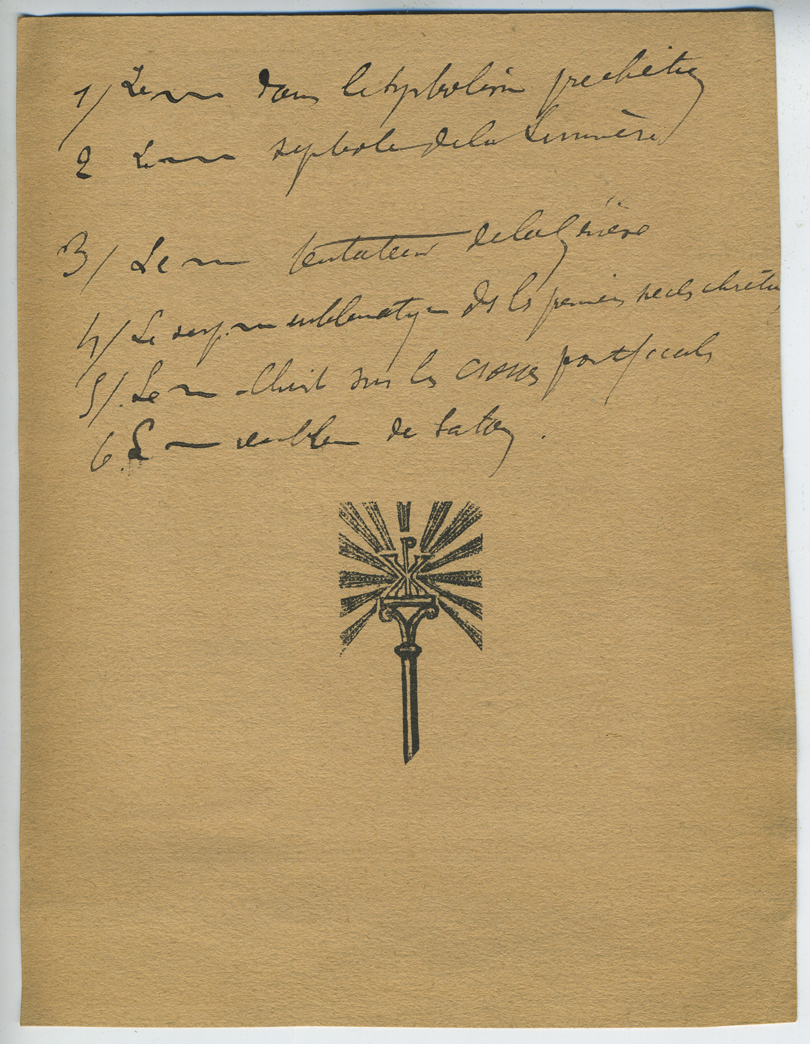 1/ Le ~~ dans le symbolisme préchrétien
2 Le ~~ symbole de la Lumière
3/ Le ~~ tentateur de la Génèse
4/ Le serp. ~~ emblématique des les premiers siècles chrétiens
5/ Le ~~ Christ sur les crosses pontificales
6. Le ~~ emblème de Satan.